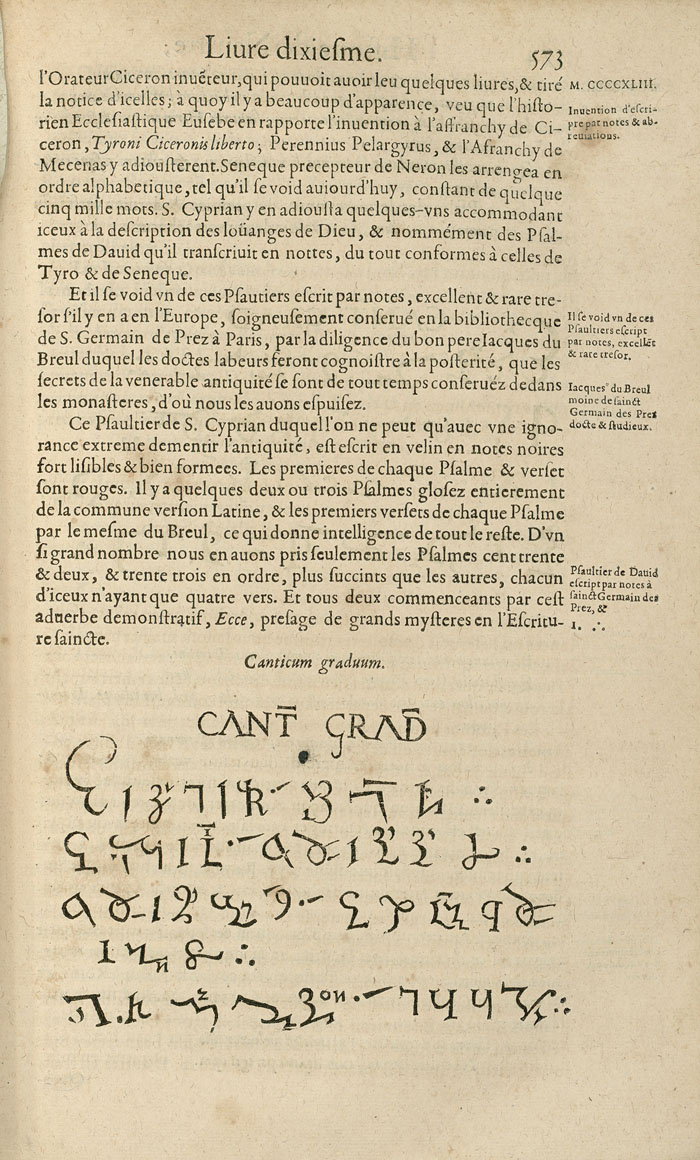 Liure dixiesme. 573
l'Orateur Ciceron inuēteur, qui pouuoit auoir leu quelques liures, & tiré
la notice d'icelles; à quoy il y a beaucoup d'apparence, veu que l'histo-
rien Ecclesiastique Eusebe en rapporte l'inuention à l'affranchy de Ci-
ceron, Tyroni Ciceronis liberto; Perennius Pelargyrus, & l'Afranchy de
Mecenas y adiousterent. Seneque precepteur de Neron les arrengea en
ordre alphabetique, tel qu'il se void auiourd'huy, constant de quelque
cinq mille mots. S. Cyprian y en adiousta quelques-vns accommodant
iceux à la description des loüanges de Dieu, & nommément des Psal-
mes de Dauid qu'il transcriuit en nottes, du tout conformes à celles de
Tyro & de Seneque.
Et il se void vn de ces Psautiers escrit par notes, excellent & rare tre-
sor s'il y en a en l'Europe, soigneusement conserué en la bibliothecque
de S. Germain de Prez à Paris, par la diligence du bon pere Iacques du
Breul duquel les doctes labeurs feront cognoistre à la posterité, que les
secrets de la venerable antiquité se sont de tout temps conseruéz dedans
les monasteres, d'où nous les auons espuisez.
Ce Psaultier de S. Cyprian duquel l'on ne peut qu'auec vne igno-
rance extreme dementir l'antiquité, est escrit en velin en notes noires
fort lisibles & bien formees. Les premieres de chaque Psalme & verset
sont rouges. Il y a quelques deux ou trois Psalmes glosez entierement
de la commune version Latine, & les premiers versets de chaque Psalme
par le mesme du Breul, ce qui donne intelligence de tout le reste. D'vn
si grand nombre nous en auons pris seulement les Psalmes cent trente
& deux, & trente trois en ordre, plus succints que les autres, chacun
d'iceux n'ayant que quatre vers. Et tous deux commenceants par cest
aduerbe demonstratif, Ecce, presage de grands mysteres en l'Escritu-
re saincte.
M. CCCCXLIII.
Inuention d'escri-
pre par notes & ab-
reuiations.
Il se void vn de ces
Psaultiers escript
par notes, excellēt
& rare tresor.
Iacques du Breul
moine de sainct
Germain des Prez
docte & studieux.
Psaultier de Dauid
escript par notes à
sainct Germain des
Prez, &
1.
Canticum graduum.
CANT̄ GRAD̄